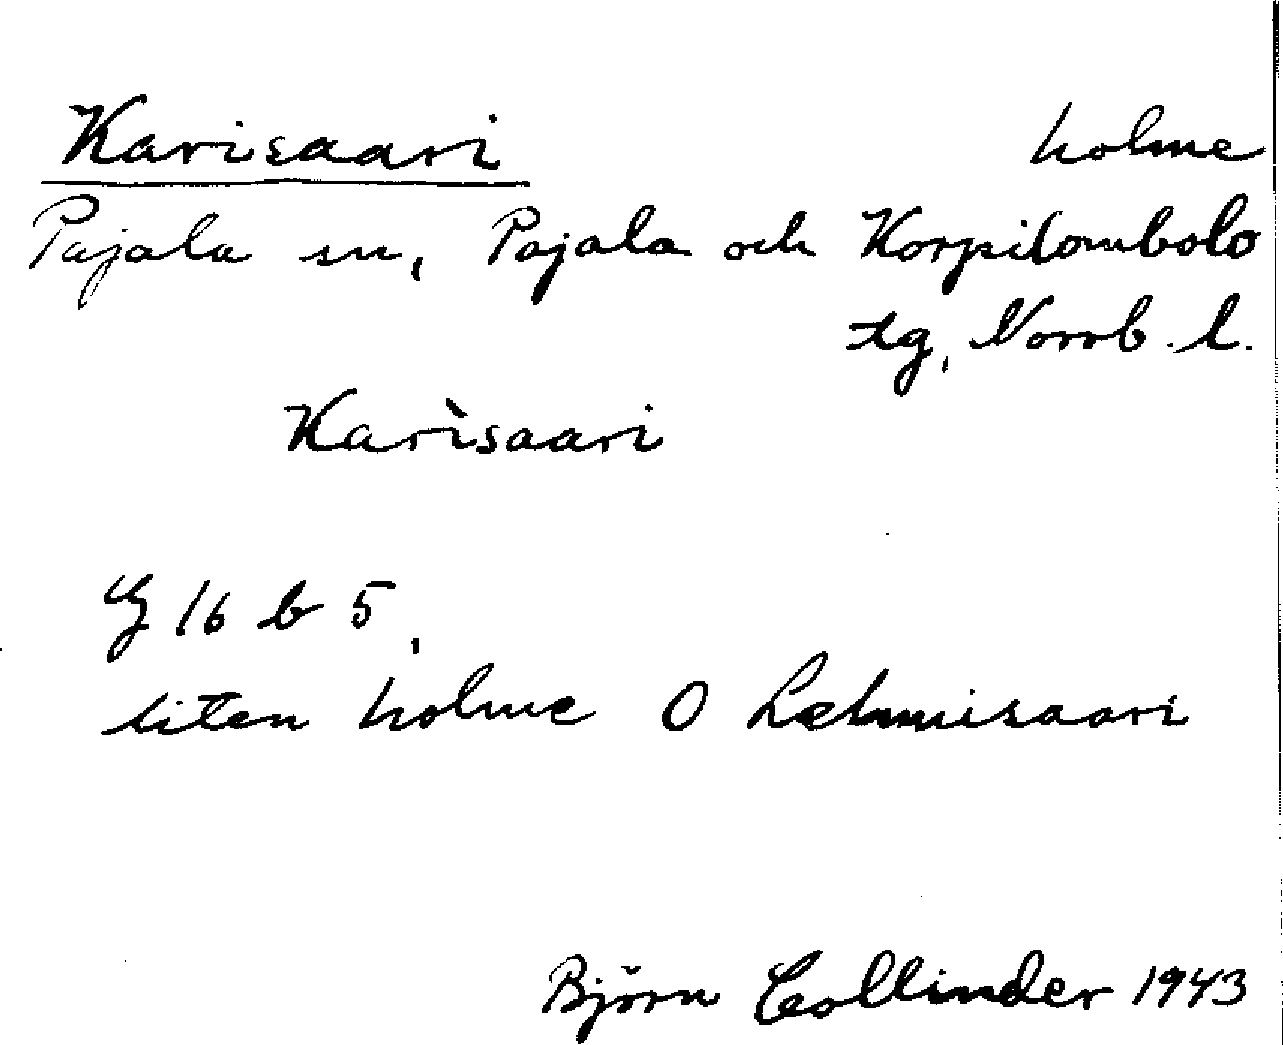 Karisaari holme
Pajala sn, Pajala och Korpilombolo
tg, Norrb. l.
Karìsaari
G 16 b 5,
liten holme O Lehmisaari
Björn Collinder 1943